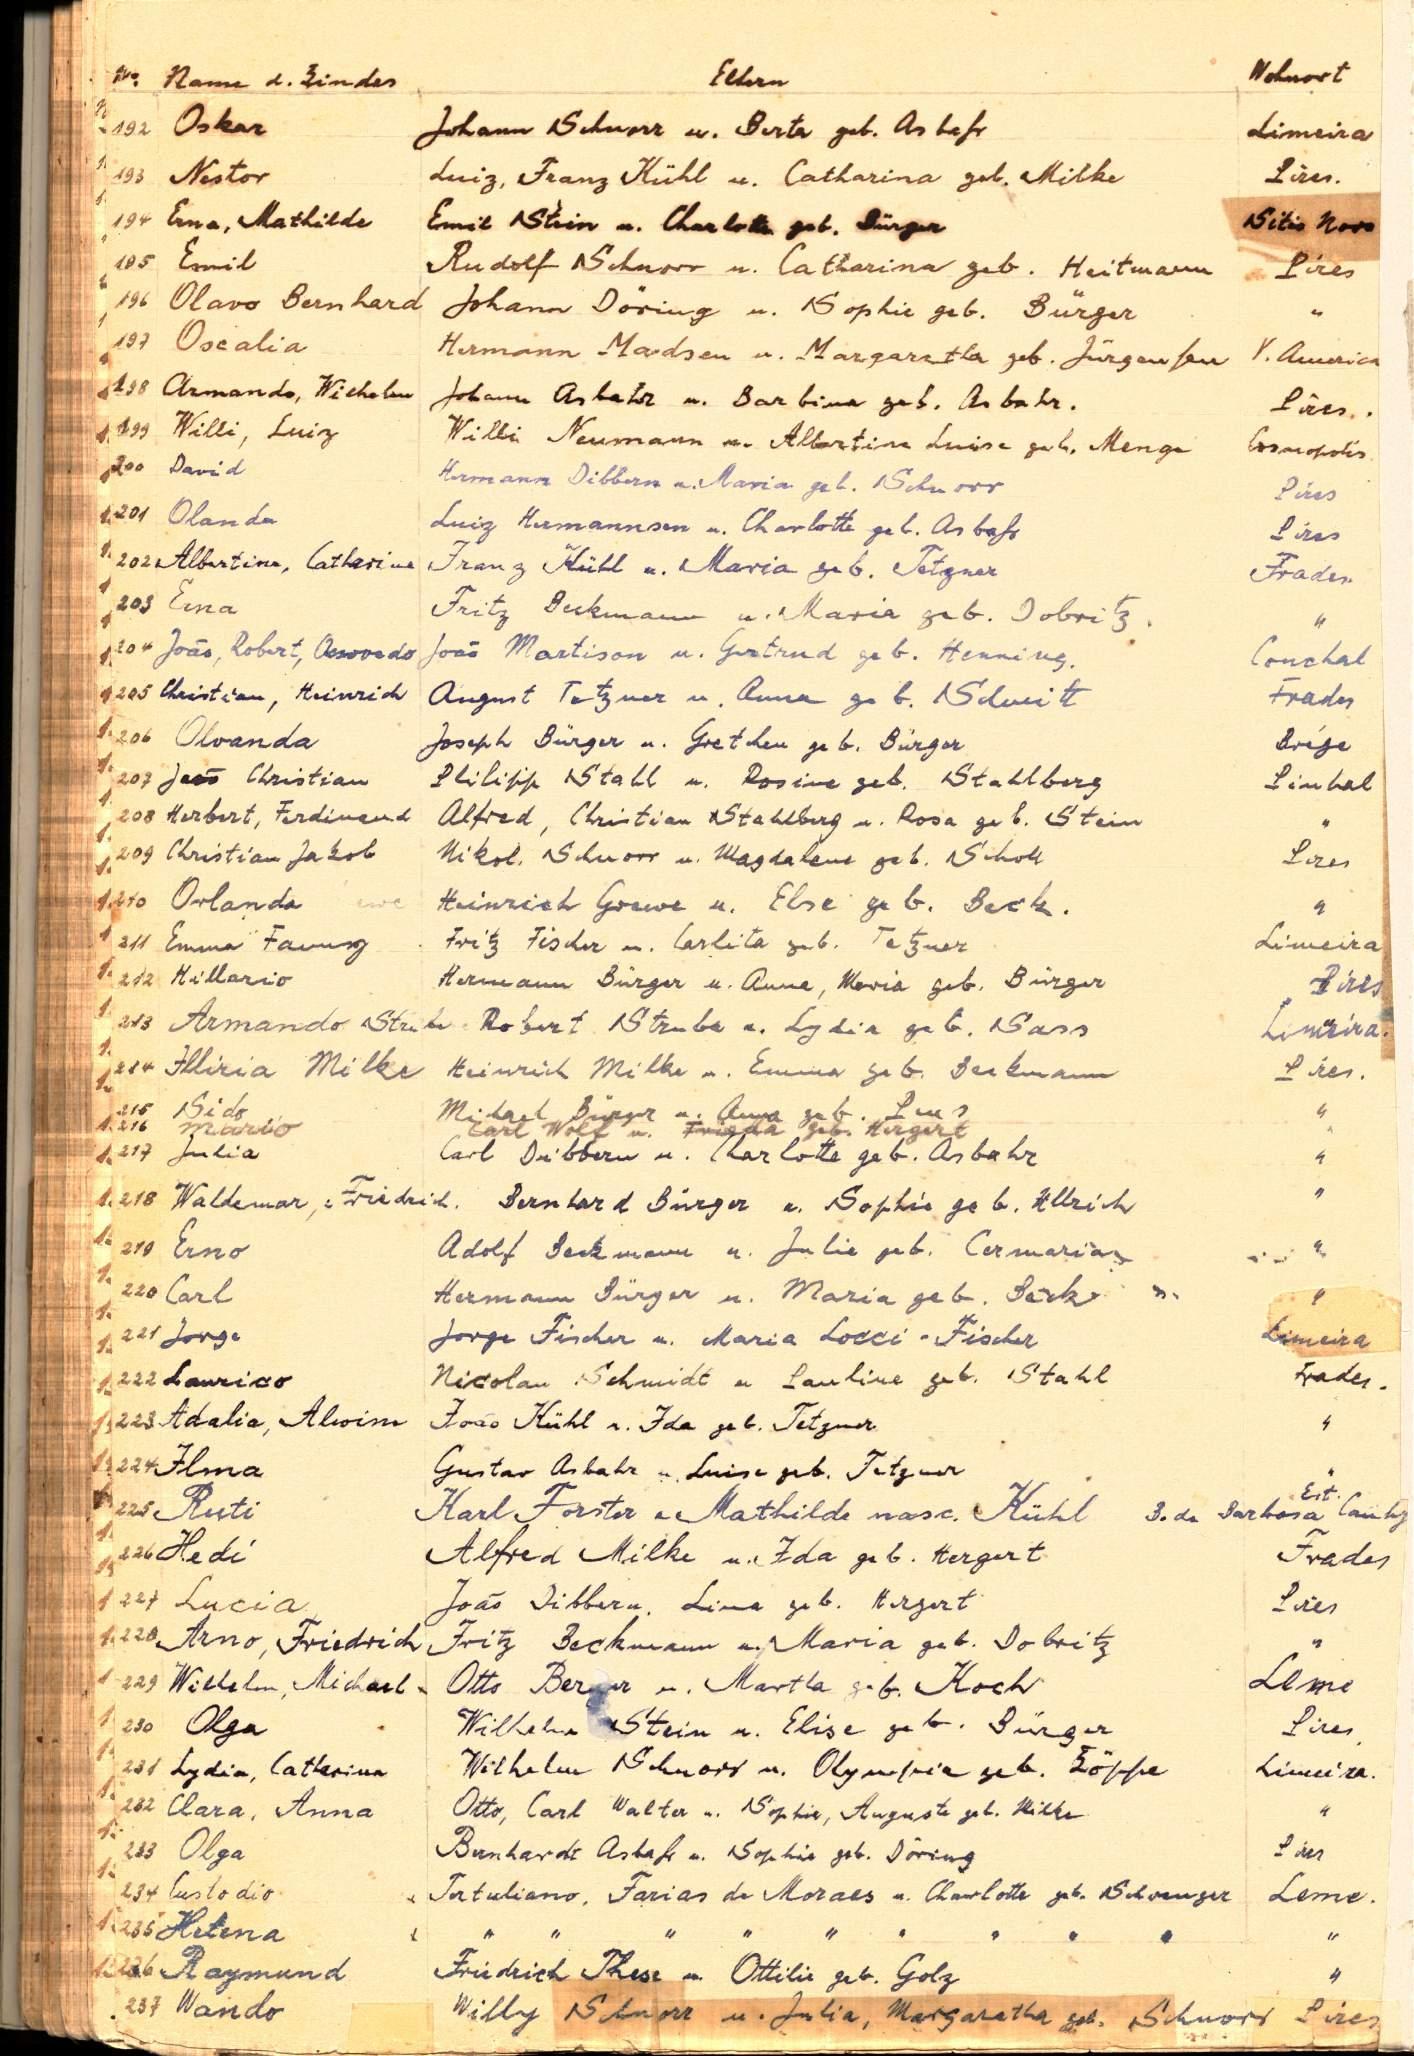 No. Name d. Kindes Eltern Wohnort
192 Oskar Johann Schnorr u. Berta geb. Asbahr Limeira
193 Nestor Luiz, Franz Kühl u. Catharina geb. Milke Pires.
194 Erna, Mathilde Emil Stein u. Charlotte geb. Bürger Sitio Novo
195 Emil Rudolf Schnorr u. Catharina geb. Heitmann Pires
196 Olavo Bernhard Johann Döring u. Sophie geb. Bürger "
197 Oscalia Hermann Madsen u. Margaretha geb. Jürgensen V. America
198 Armando, Wilhelm Johann Asbahr u. Barbina geb. Asbahr. Pires.
199 Willi, Luiz Willi Neumann u. Albertine Luise geb. Menge Cosmopolis
200 David Hermann Dibbern u. Maria geb. Schnorr Pires
201 Olanda Luiz Hermannsen u. Charlotte geb. Asbahr Pires
202 Albertina, Catharine Franz Kühl u. Maria geb. Tetzner Frades
203 Erna Fritz Beckmann u. Maria geb. Dobritz. "
204 João, Robert, João Martison u. Gertrud geb. Henning. Conchal
205 Christian, Heinrich August Tetzner u. Anna geb. Schmitt Frades
206 Olvanda Joseph Bürger u. Gretchen geb. Bürger
207 João Christian Philipp Stahl u. Rosine geb. Stahlberg Pinhal
208 Herbert, Ferdinand Alfred, Christian Stahlberg u. Rosa geb. Stein "
209 Christian Jakob Nikol. Schnorr u. Magdalene geb. Scholl Pires
210 Orlando Heinrich Greuwe u. Else geb. Beck. "
211 Emma Fritz Fischer u. Carlita geb. Tetzner Limeira
212 Hillario Hermann Bürger u. Anna, Maria geb. Bürger Pires
213 Armando Strube Robert Strube u. Lydia geb. Sass Limeira.
214 Illiria Milke Heinrich Milke u. Emma geb. Beckmann Pires.
215 Sido Michael Bürger u. Anna geb. Pens "
216 Mario Carl Wolf u. Frieda geb. Hergert "
217 Julia Carl Dibbern u. Charlotte geb. Asbahr "
218 Waldemar, Friedrich. Bernhard Bürger u. Sophie geb. Ullrich "
219 Erno Adolf Beckmann u. Julie geb. Cermaria "
220 Carl Hermann Bürger u. Maria geb. Berk "
221 Jorge Jorge Fischer u. Maria Locci-Fischer Limeira
222 Laurico Nicolau Schmidt u Pauline geb. Stahl Frades.
223 Adalia, Alwine João Kühl u. Ida geb. Tetzner "
224 Ilma Gustav Asbahr u. Luise geb. Tetzner "
225 Ruti Karl Forster u Mathilde nasc. Kühl B. da Barbosa Est.
226 Hedi Alfred Milke u. Ida geb. Hergert Frades
227 Lucia João Dibbern. Lina geb. Hergert Pires
228 Arno, Friedrich Fritz Beckmann u. Maria geb. Dobritz "
229 Wilhelm, Michael Otto Berger u. Martha geb. Koch Leme
230 Olga Wilhelm Stein u. Elise geb. Bürger Pires
231 Lydia, Catharina Wilhelm Schnorr u. Olympia geb. Köppe Limeira.
232 Clara, Anna Otto, Carl Walter u. Sophie, Auguste geb. Milke "
233 Olga Bernhardt Asbahr u. Sophie geb. Döring Pires
234 Custodio Tertuliano, Farias de Moraes u. Charlotte geb. Schwenger Leme.
235 Helena " " " " " " " " " "
236 Raymund Friedrich These u. Ottilie geb. Golz "
237 Wando Willy Schnorr u. Julia, Margaretha geb. Schnorr Pires